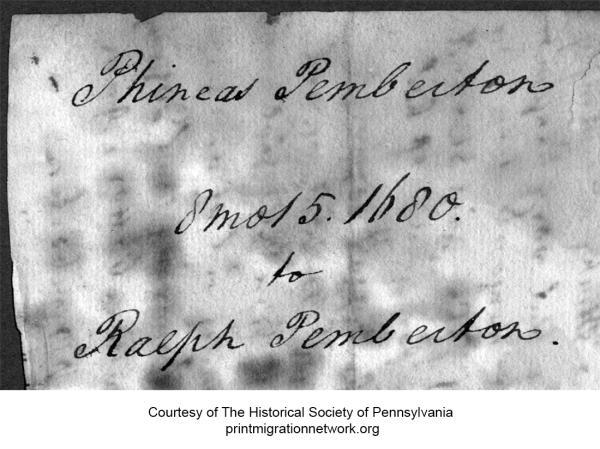 Phineas Pemberton
8 mo 15. 1680.
to
Ralph Pemberton.
Courtesy of The Historical Society of Pennsylvania
printmigrationnetwork.org